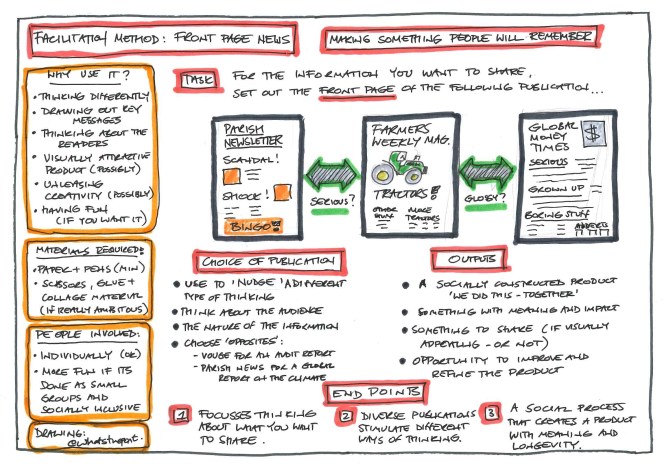 FACILITATION METHOD: FRONT PAGE NEWS
MAKING SOMETHING PEOPLE WILL REMEMBER
WHY USE IT?
• THINKING DIFFERENTLY
• DRAWING OUT KEY
MESSAGES
• THINKING ABOUT THE
READERS
• VISUALLY ATTRACTIVE
PRODUCT (POSSIBLY)
• UNLEASHING
CREATIVITY (POSSIBLY)
• HAVING FUN
(IF YOU WANT IT)
MATERIALS REQUIRED:
• PAPER + PENS (MIN)
• SCISSORS, GLUE +
COLLAGE MATERIAL
(IF REALLY AMBITIOUS)
PEOPLE INVOLVED:
• INDIVIDUALLY (OK)
• MORE FUN IF ITS
DONE AS SMALL
GROUPS AND
SOCIALLY INCLUSIVE
DRAWING:
TASK
FOR THE INFORMATION YOU WANT TO SHARE,
SET OUT THE FRONT PAGE OF THE FOLLOWING PUBLICATION...
PARISH
NEWSLETTER
SCANDAL!
SHOCK!
BINGO!
SERIOUS?
FARMERS
WEEKLY MAG.
TRACTORS!
OTHER
MORE
TRACTORS
GLOBY?
GLOBAL
MONEY
TIMES
$
SERIOUS
GROWN UP
BORING STUFF
ADVERTS
CHOICE OF PUBLICATION
• USE TO 'NUDGE' A DIFFERENT
TYPE OF THINKING
• THINK ABOUT THE AUDIENCE
• THE NATURE OF THE INFORMATION
• CHOOSE 'OPPOSITES':
- VOUGE FOR AN AUDIT REPORT
- PARISH NEWS FOR A GLOBAL
REPORT ON THE CLIMATE
OUTPUTS
• A SOCIALLY CONSTRUCTED PRODUCT
'WE DID THIS - TOGETHER'
• SOMETHING WITH MEANING AND IMPACT
• SOMETHING TO SHARE (IF VISUALLY
APPEALING - OR NOT)
• OPPORTUNITY TO IMPROVE AND
REFINE THE PRODUCT
END POINTS
1 FOCUSSES THINKING
ABOUT WHAT YOU WANT
TO SHARE.
2 DIVERSE PUBLICATIONS
STIMULATE DIFFERENT
WAYS OF THINKING.
3 A SOCIAL PROCESS
THAT CREATES A PRODUCT
WITH MEANING AND
LONGEVITY.